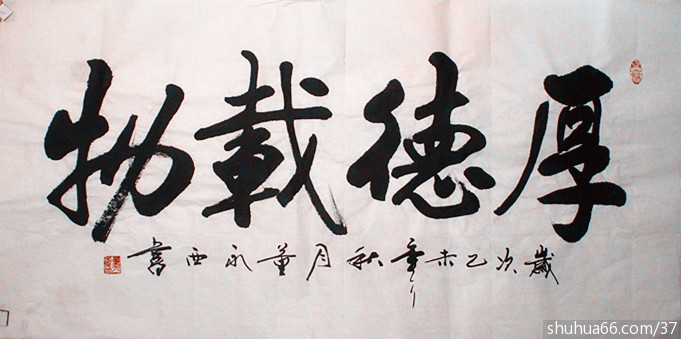 厚德載物
歲次乙未年秋月董永西書
shuhua66.com/37